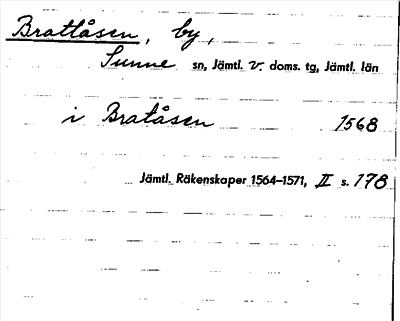 Brattåsen, by,
Sunne sn, Jämtl. v. doms. tg, Jämtl. län
i Bratåsen 1568
Jämtl. Räkenskaper 1564–1571, II s. 178